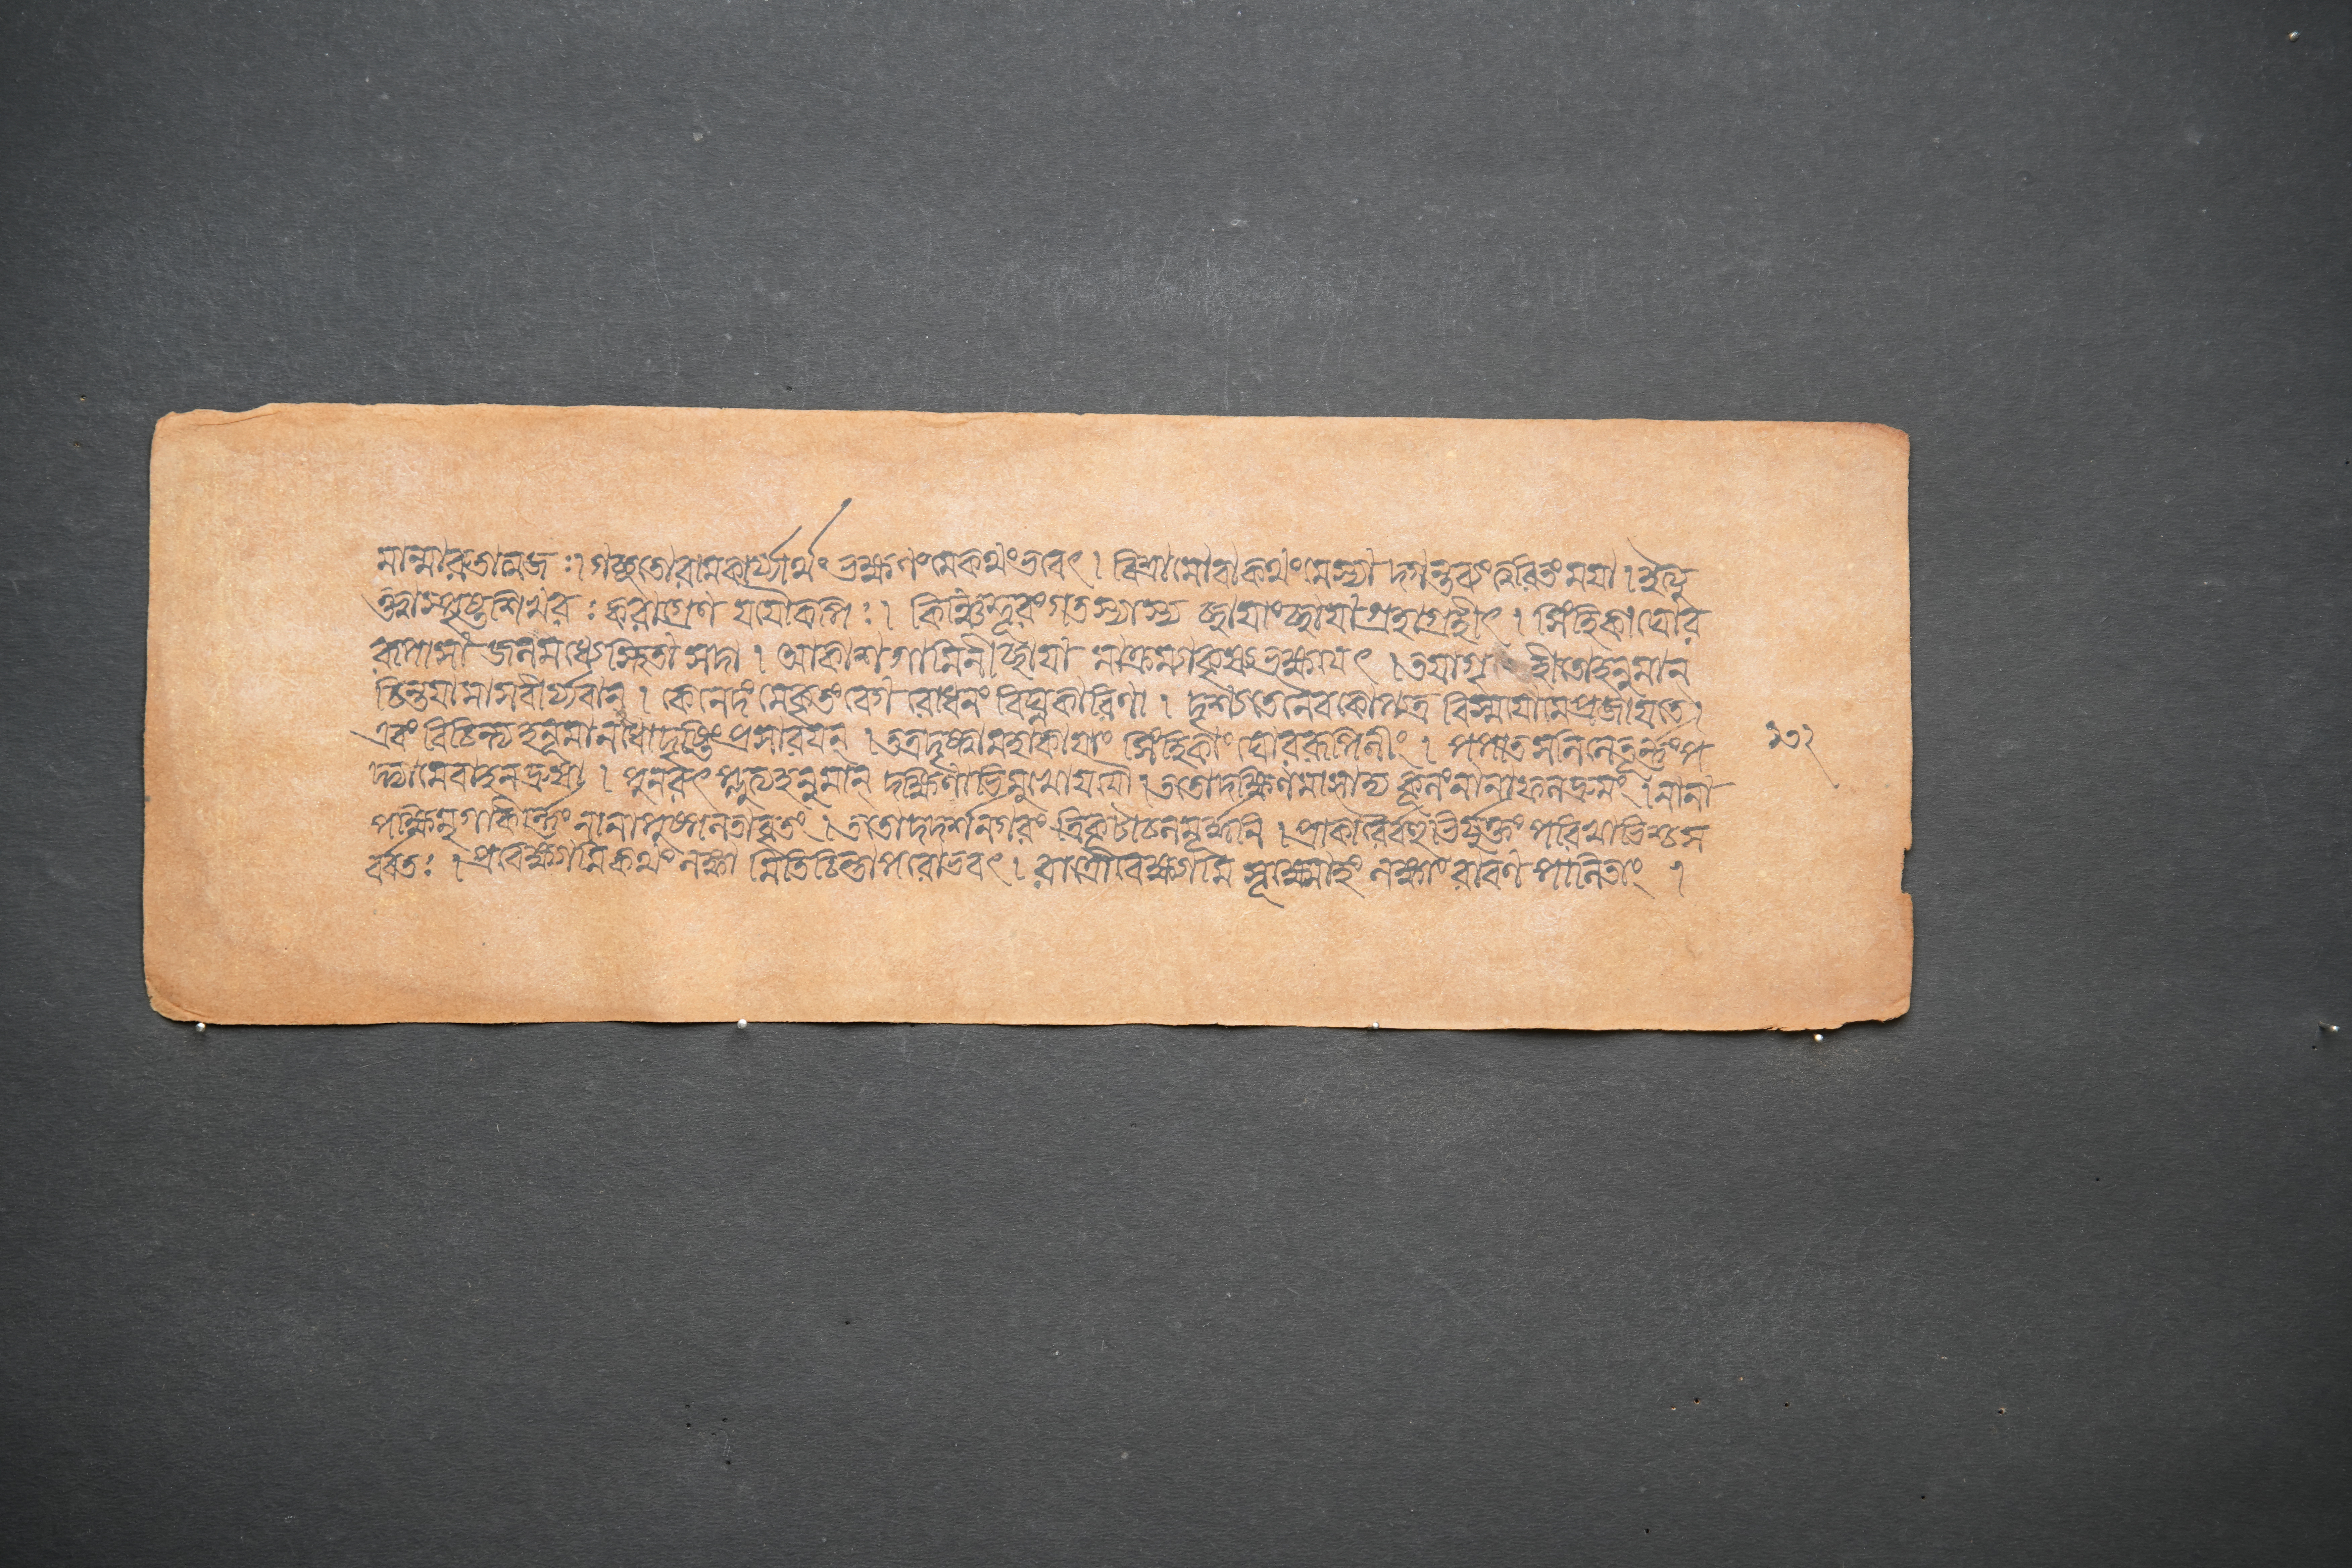 মান্মারুতাত্মজঃ। গচ্ছতোরামকার্য্যার্থং ভক্ষণংমেকথংভবেৎ। বিশ্রামোবাকথংমেস্যা দ্গন্তব্যংত্বরিতংময়া। ইত্যু
ক্ত্বাস্পৃষ্টশিখরঃ করাগ্রেণ যযৌকপিঃ। কিঞ্চিদ্দূরংগতস্যাস্য ছায়াংছায়াগ্রহাগ্রহীৎ। সিংহিকাঘোর
রূপাসা জলমধ্যেস্থিতা সদা। আকাশগামিনীংছায়া মাক্রম্যাকৃষ্যভক্ষয়েৎ। তয়াগৃ হীতোহনুমান
চিন্তয়ামাসবীর্য্যবান্। কেনেদং মেকৃতংবেগ রোধনং বিঘ্নকারিণা। দৃশ্যতেনৈবকোপ্যত্র বিস্ময়োমেপ্রজায়তে।
এবং বিচিন্ত্যহনূমানধোদৃষ্টিংপ্রসারয়ন্। তত্রদৃষ্ট্বামহাকায়াং সিংহিকাং ঘোররূপিনীং। পপাতসলিলেতূর্ন্নংপ
দ্ভ্যামেবাহনদ্রুষা। পুনরুৎপ্লুত্যহনুমান্ দক্ষিণাভিমুখোযযৌ। ততোদক্ষিণমাসাদ্য কূলংনানাফলদ্রুমং। নানা
পক্ষিমৃগাকির্ন্নং নানাপুষ্পলতাবৃতং। ততোদদর্শনগরং ত্রিকূটাচলমূর্দ্ধনি। প্রাকারৈর্বহুভির্যুক্তং পরিখাভিশ্চস
র্বর্বতঃ। প্রবেক্ষ্যামিকথংলঙ্কা মিতিচিন্তাপরোভবৎ। রাত্রৌবেক্ষ্যামি সূক্ষ্মোহং লঙ্কাং রাবণ পালিতাং।
১৩২